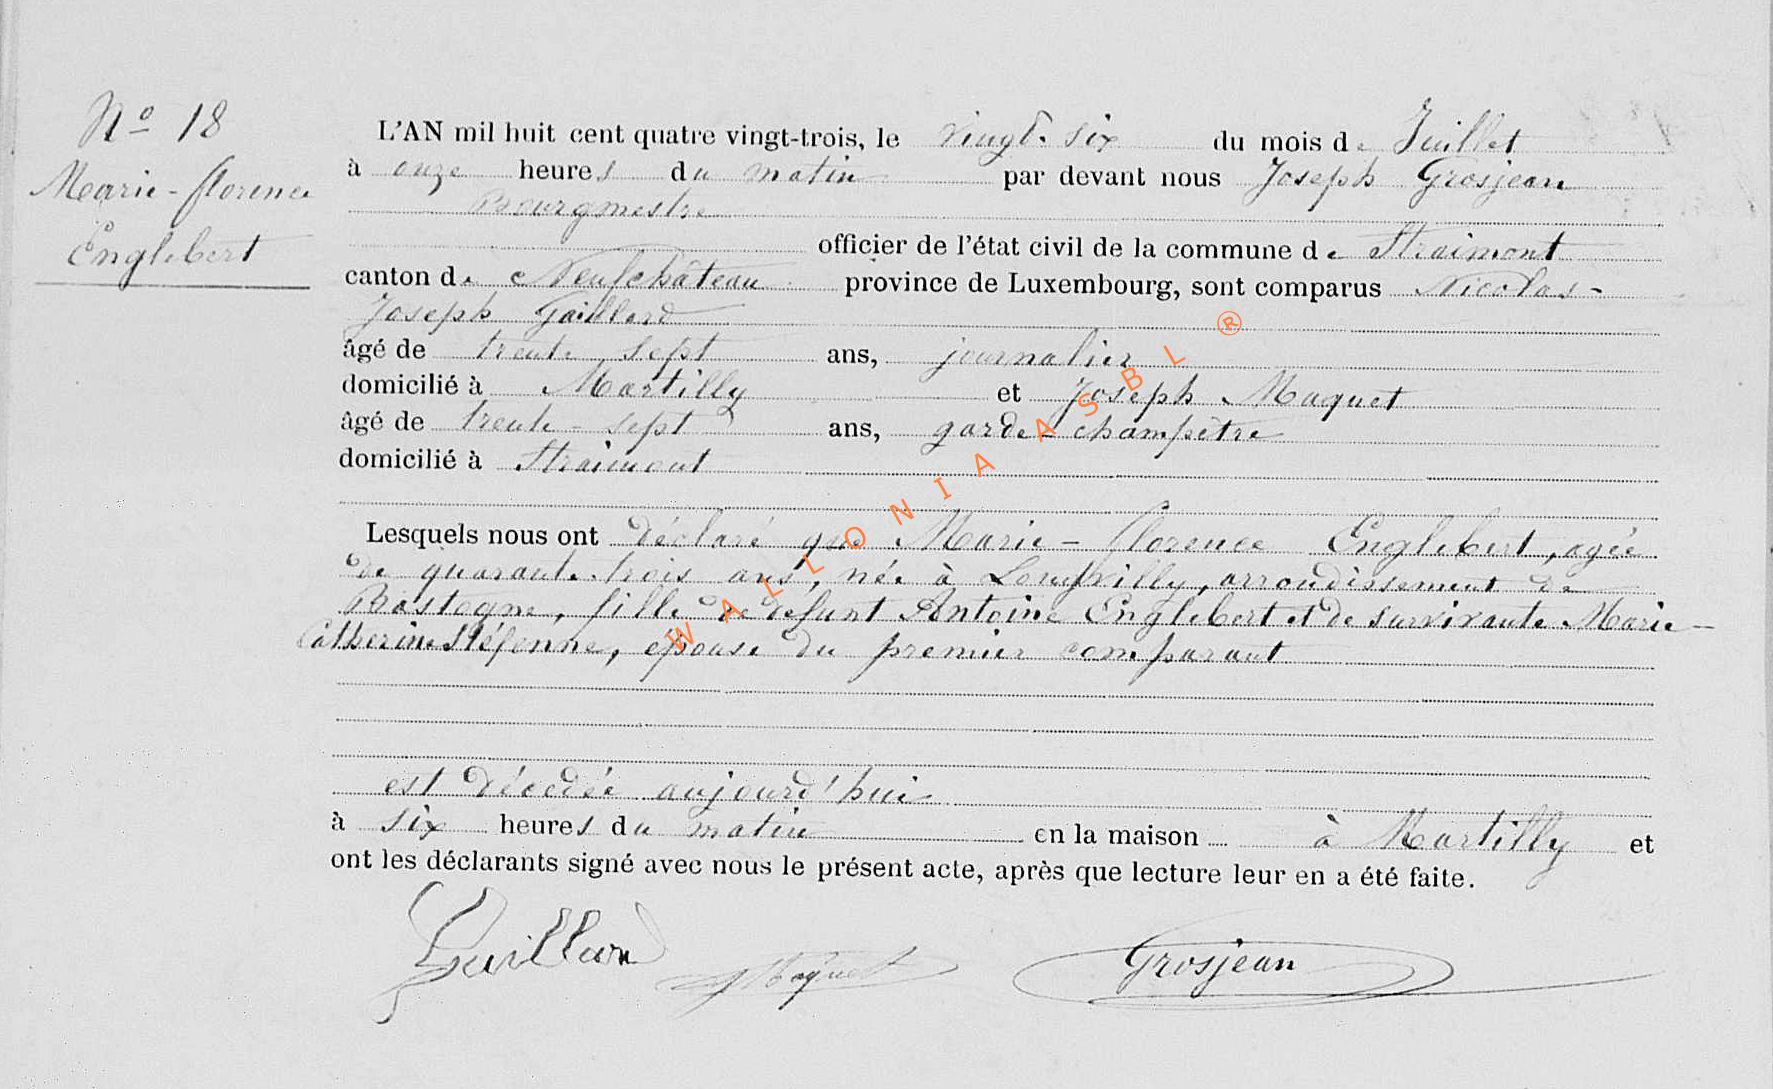 Nº 18
Marie-florence
Englebert
L'AN mil huit cent quatre vingt-trois, le vingt-six du mois de Juillet
à onze heures du matin par devant nous Joseph Grosjean
Bourgmestre
officier de l'état civil de la commune de Straimont
canton de Neufchâteau province de Luxembourg, sont comparus Nicolas-
Joseph Gaillard
âgé de trente sept ans, journalier
domicilié à Martilly et Joseph Maquet
âgé de trente-sept ans, garde-champêtre
domicilié à Straimont
Lesquels nous ont déclaré que Marie-florence Englebert, agée
de quarante-trois ans, née à Longvilly, arrondissement de
Bastogne, fille de defunt Antoine Englebert et de survivante Marie-
Catherine Stéfenne, epouse du premier comparant
est décedée aujourd'hui
à six heures du matin en la maison à Martilly et
ont les déclarants signé avec nous le présent acte, après que lecture leur en a été faite.
Gaillard Maquet Grosjean
WALLONIA ASBL ®